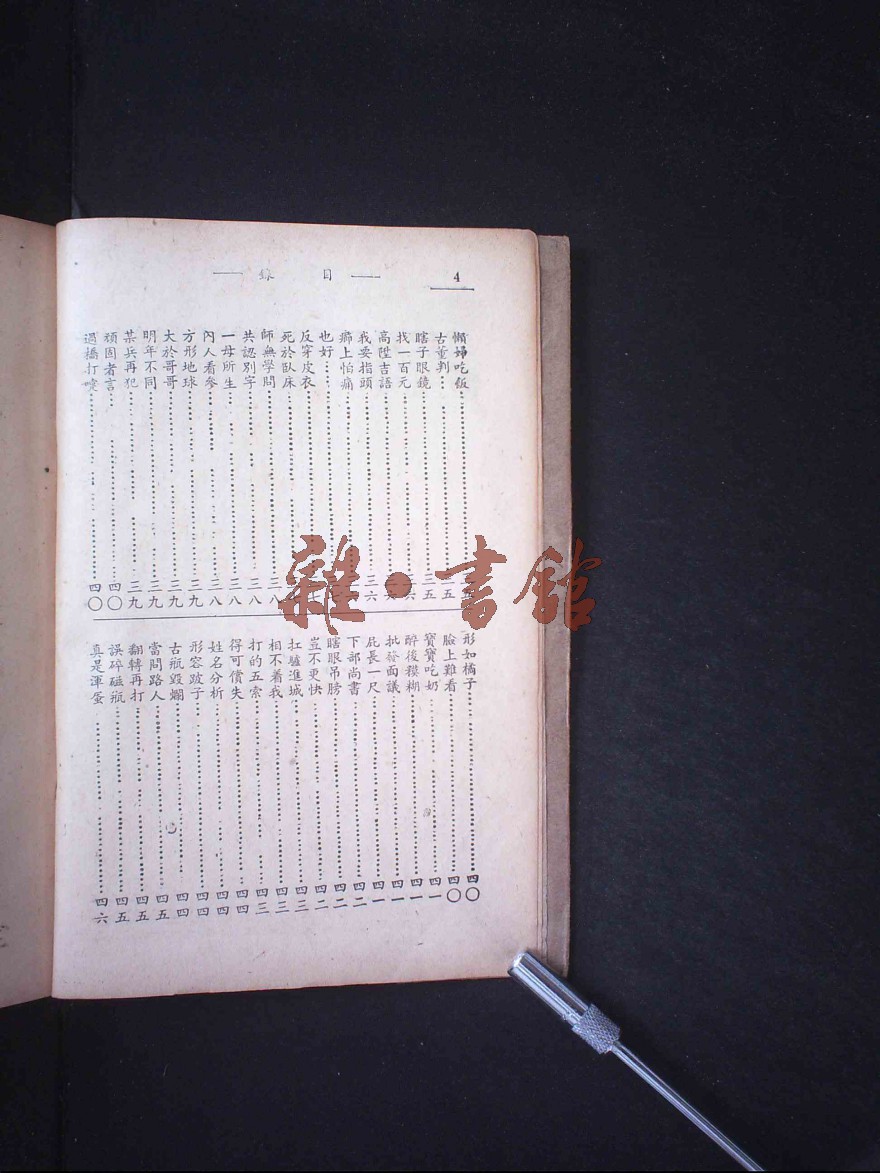 4
目錄
懶婦吃飯
古董判……五
瞎子眼鏡……三五
找一百元……六
高陞吉語
我要指頭……三六
癤上怕痛
也好
反穿皮衣
死於臥床
師無學問……三八
共認別字……三八
一母所生……三八
內人看參……三八
方形地球……三九
大於哥哥……三九
明年不同……三九
某兵再犯……三九
頑固者言……四〇
過橋打嚏……四〇
形如橘子……四〇
臉上難看……四〇
寶寶吃奶……四一
醉後糢糊……四一
批發面議……四一
屁長一尺……四一
下部尚書……四二
瞎眼吊膀……四二
豈不更快……四二
扛驢進城……四三
相不着我……四三
打的五索……四三
得可償失……四四
姓名分析……四四
形容跛子……四四
古瓶毀爛……四四
當問路人……四五
翻轉再打……四五
誤碎磁瓶……四五
真是渾蛋……四六
雜·書館